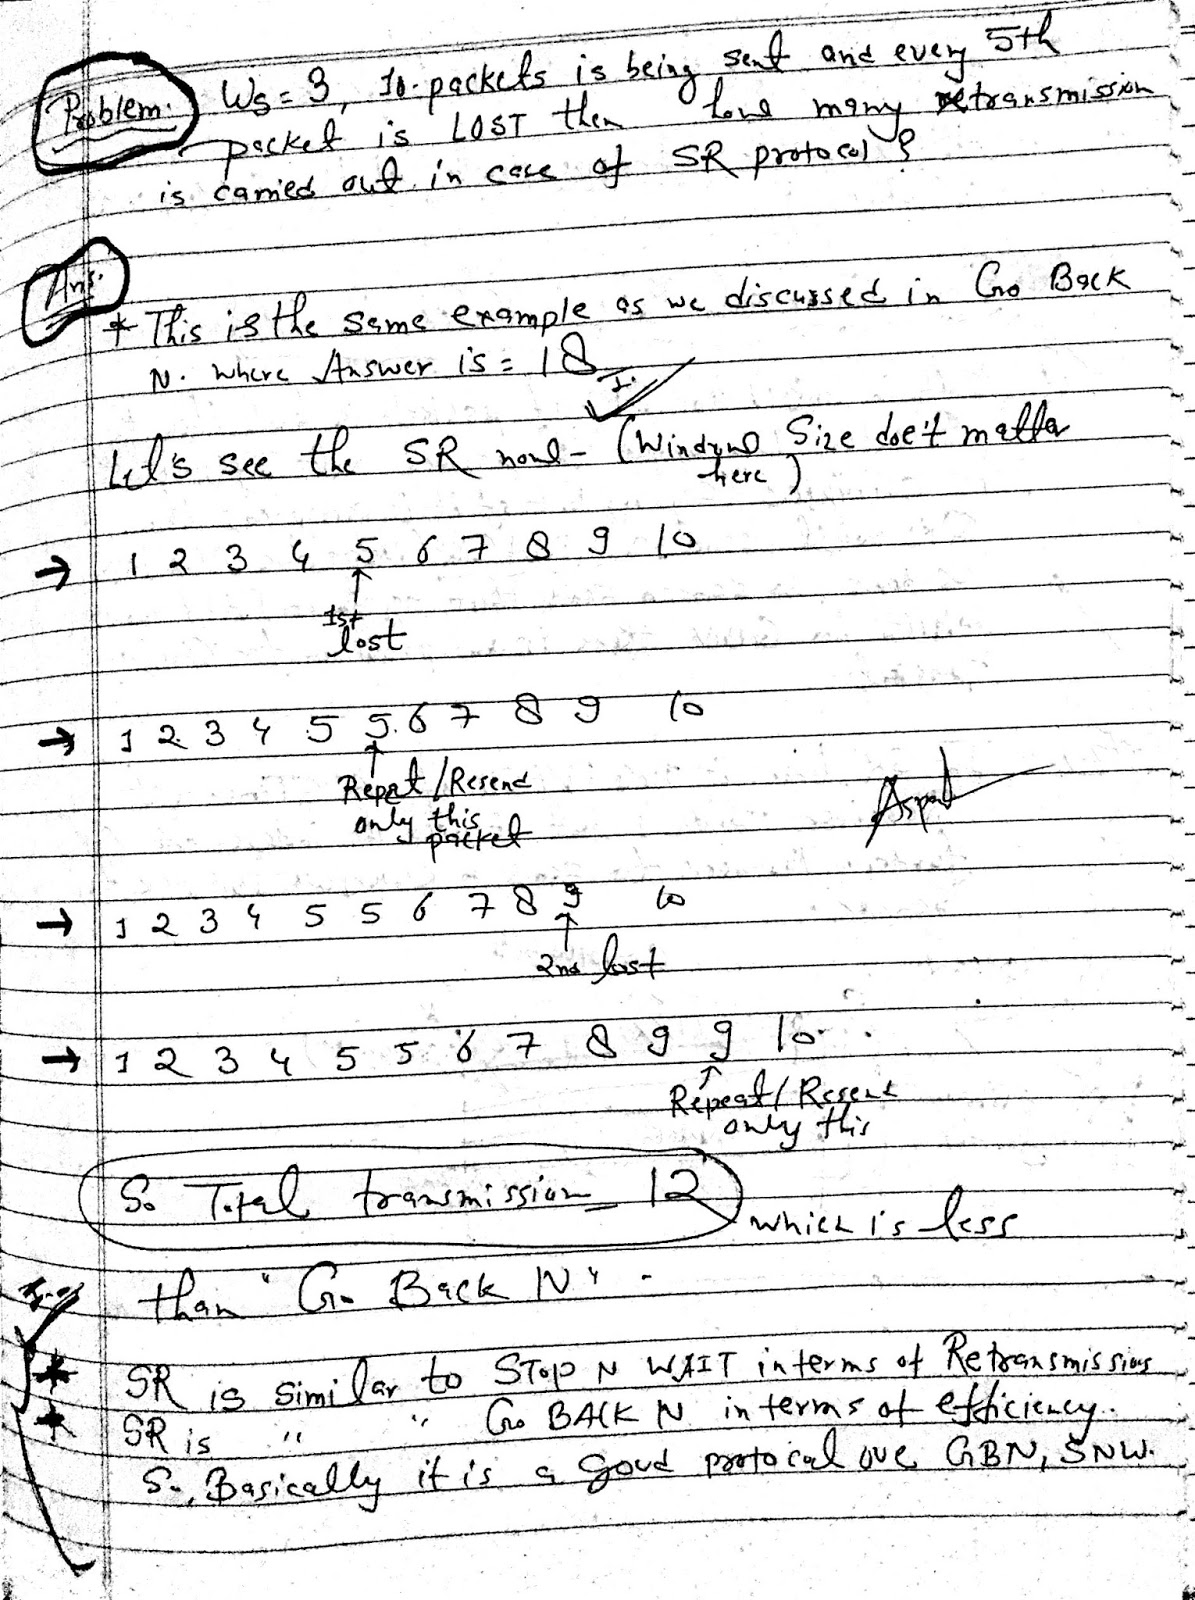 Problem. Ws = 3, 10 packets is being sent and every 5th
packet is LOST then how many retransmission
is carried out in case of SR protocol?
Ans.
* This is the same example as we discussed in Go Back
N. where Answer is = 18
Let's see the SR now - (Window Size doe't matter
here)
→ 1 2 3 4 5 6 7 8 9 10
↑
1st
lost
→ 1 2 3 4 5 5 6 7 8 9 10
↑
Repeat/Resend
only this
packet
→ 1 2 3 4 5 5 6 7 8 9 10
↑
2nd lost
→ 1 2 3 4 5 5 6 7 8 9 9 10
↑
Repeat/Resend
only this
So Total transmission = 12 which is less
than "Go Back N".
* SR is similar to STOP N WAIT in terms of Retransmissions
* SR is " Go BACK N in terms of efficiency.
So, Basically it is a good protocal ove GBN, SNW.